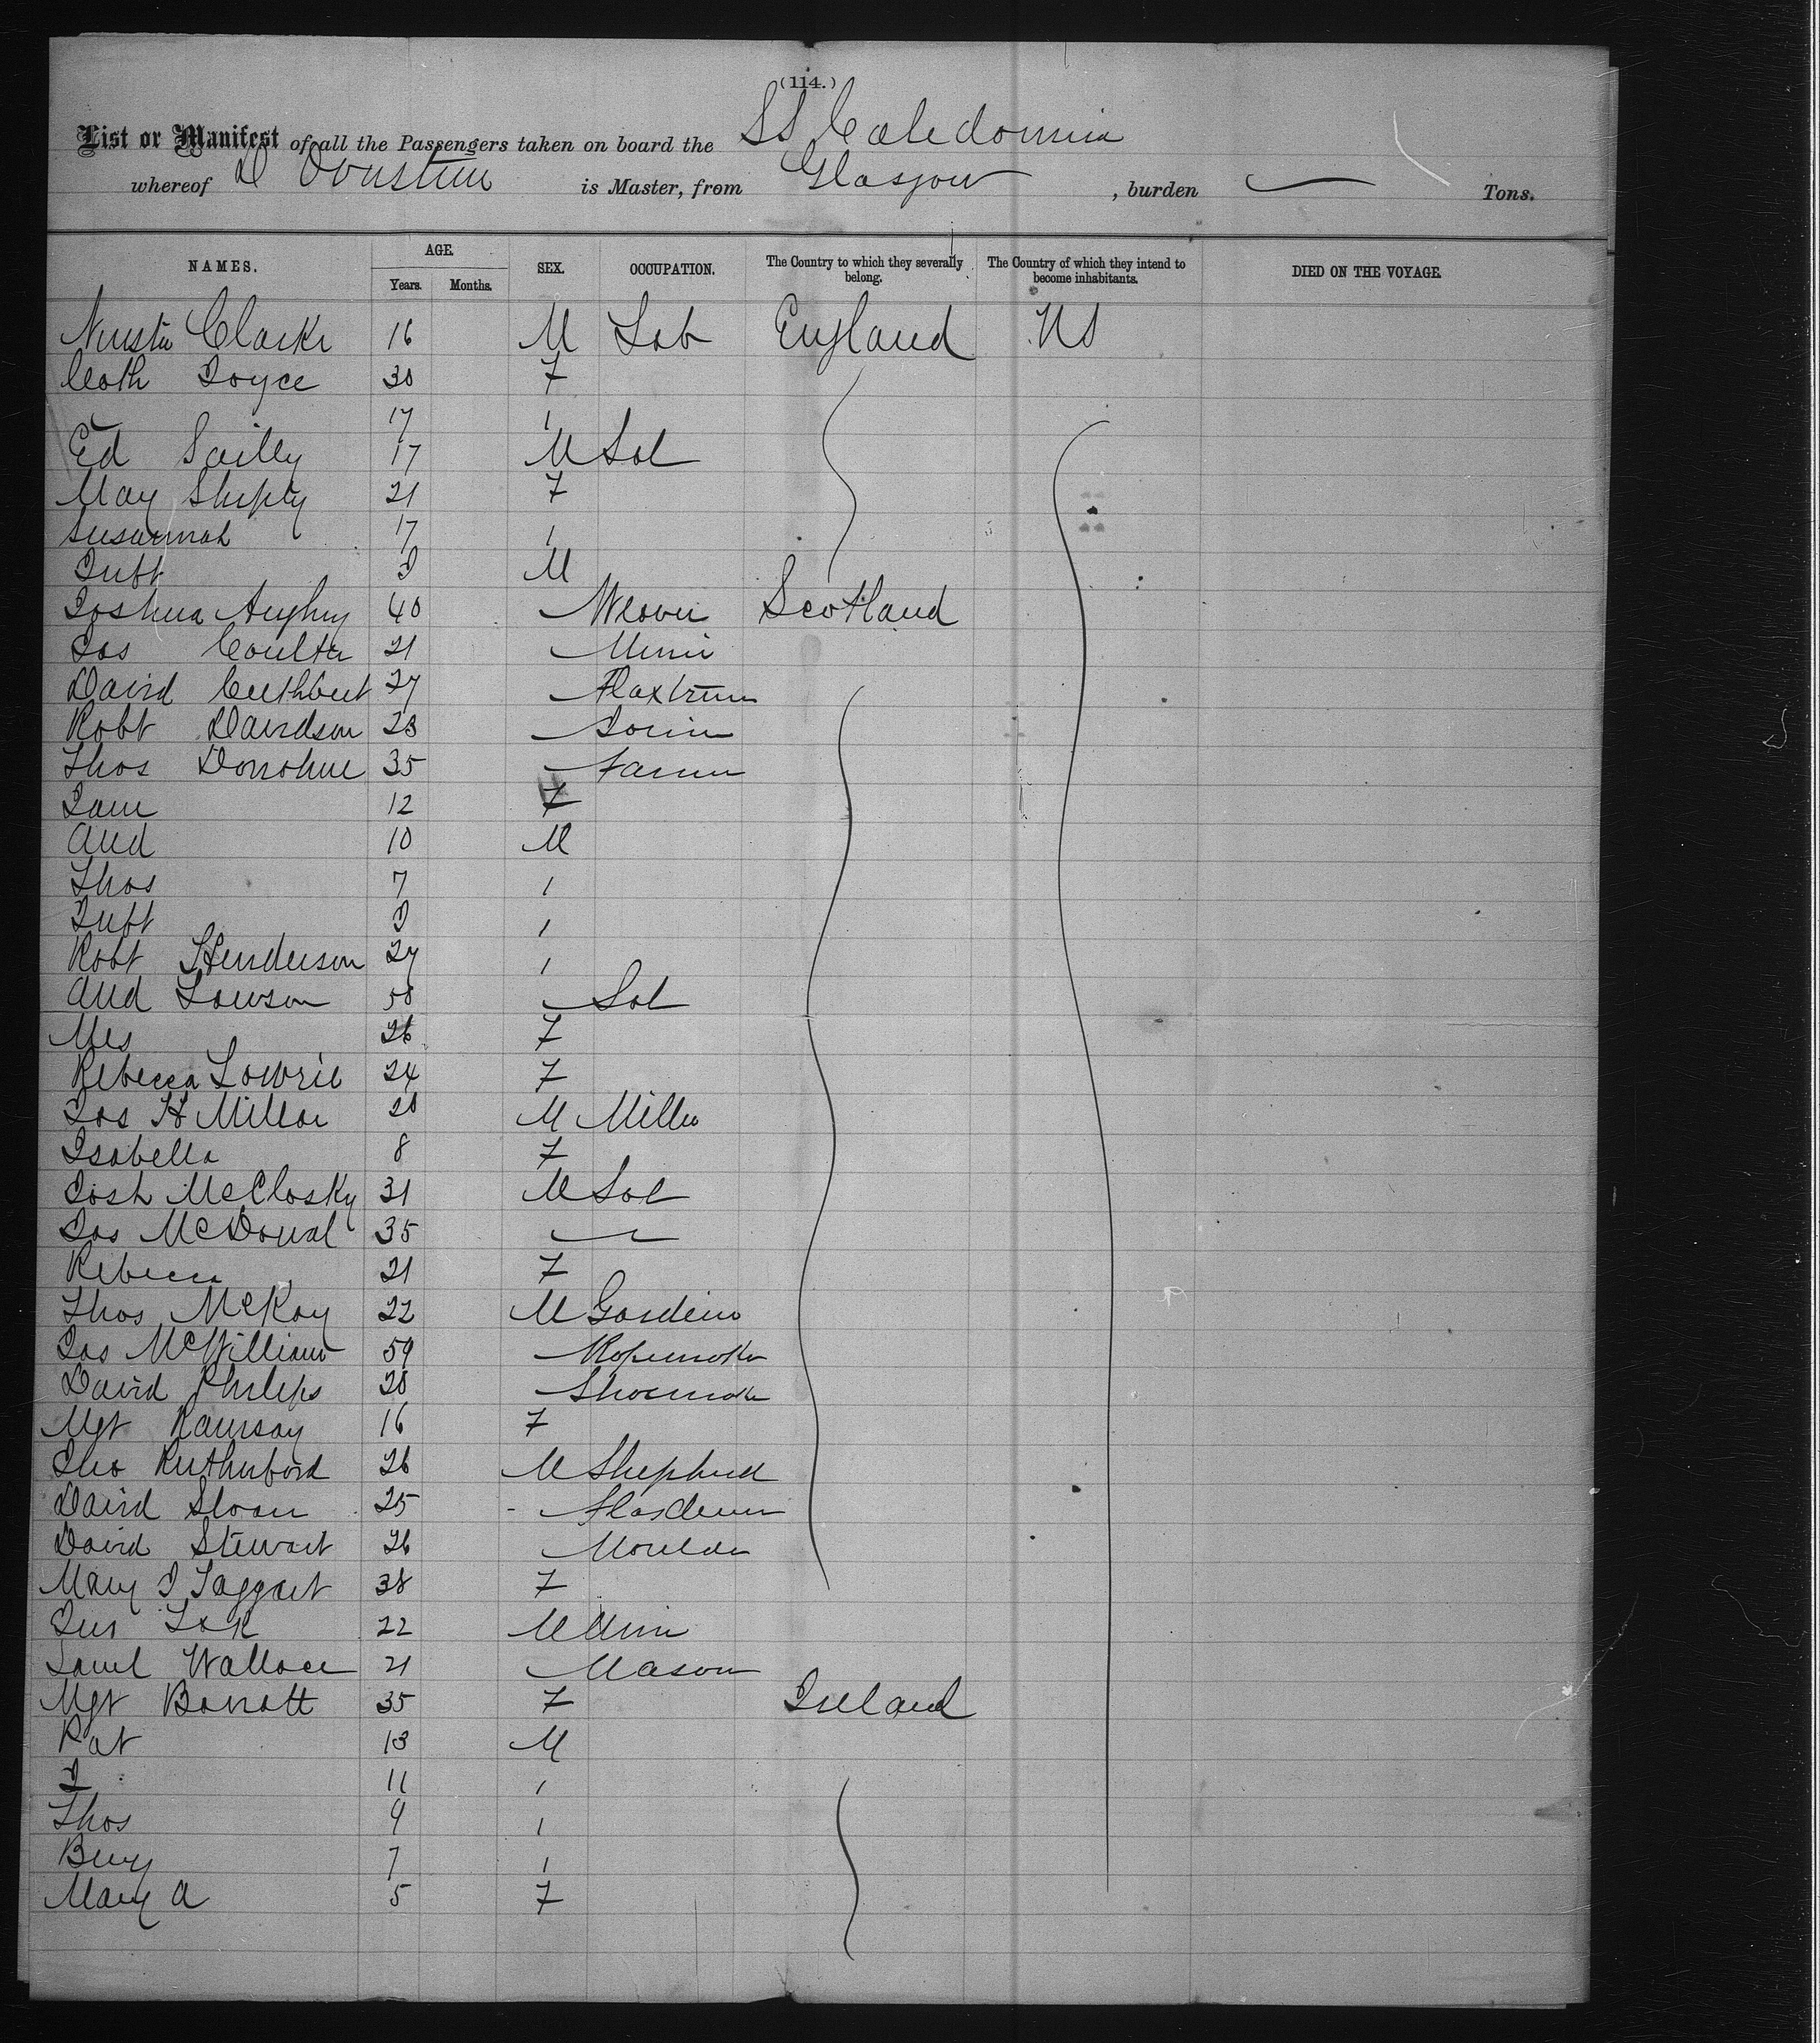 (114.)
List or Manifest of all the Passengers taken on board the SS Caledonia
whereof D is Master, from Glasgow, burden — Tons.
NAMES. AGE. SEX. OCCUPATION. The Country to which they severally belong. The Country of which they intend to become inhabitants. DIED ON THE VOYAGE.
Years. Months.
Clarke 16 M Lab England US
Cath Joyce 30 F
17 /
Ed 17 M Lab
May 21 F
Susannah 17 /
Inft M
Joshua 40 Weaver Scotland
Jas Coulter 21 Miner
David Cuthbert 27
Robt Davidson 23
Thos Donohue 35 Farmer
Jane 12 F
And 10 M
Thos 7 /
Inft /
Robt Henderson 27 /
And Lawson 58 Lab
Mrs 26 F
Rebecca Lowrie 24 F
Jas H Millar 28 M Miller
Isabella 8 F
Josh McClosky 31 M Lab
Jas McDonal 35
Rebecca 21 F
Thos McKay 22 M Gardener
Jas McWilliams 59 Ropemaker
David Philips 28 Shoemaker
Mgt Ramsay 16 F
Jno Rutherford 26 M Shepherd
David Sloan 25
David Stewart 26 Moulder
Mary J Taggart 38 F
22 M Miner
Saml Wallace 21 Mason
Mgt Barrott 35 F Ireland
Pat 13 M
J 11 /
Thos 9 /
Benj 7 /
Mary A 5 F